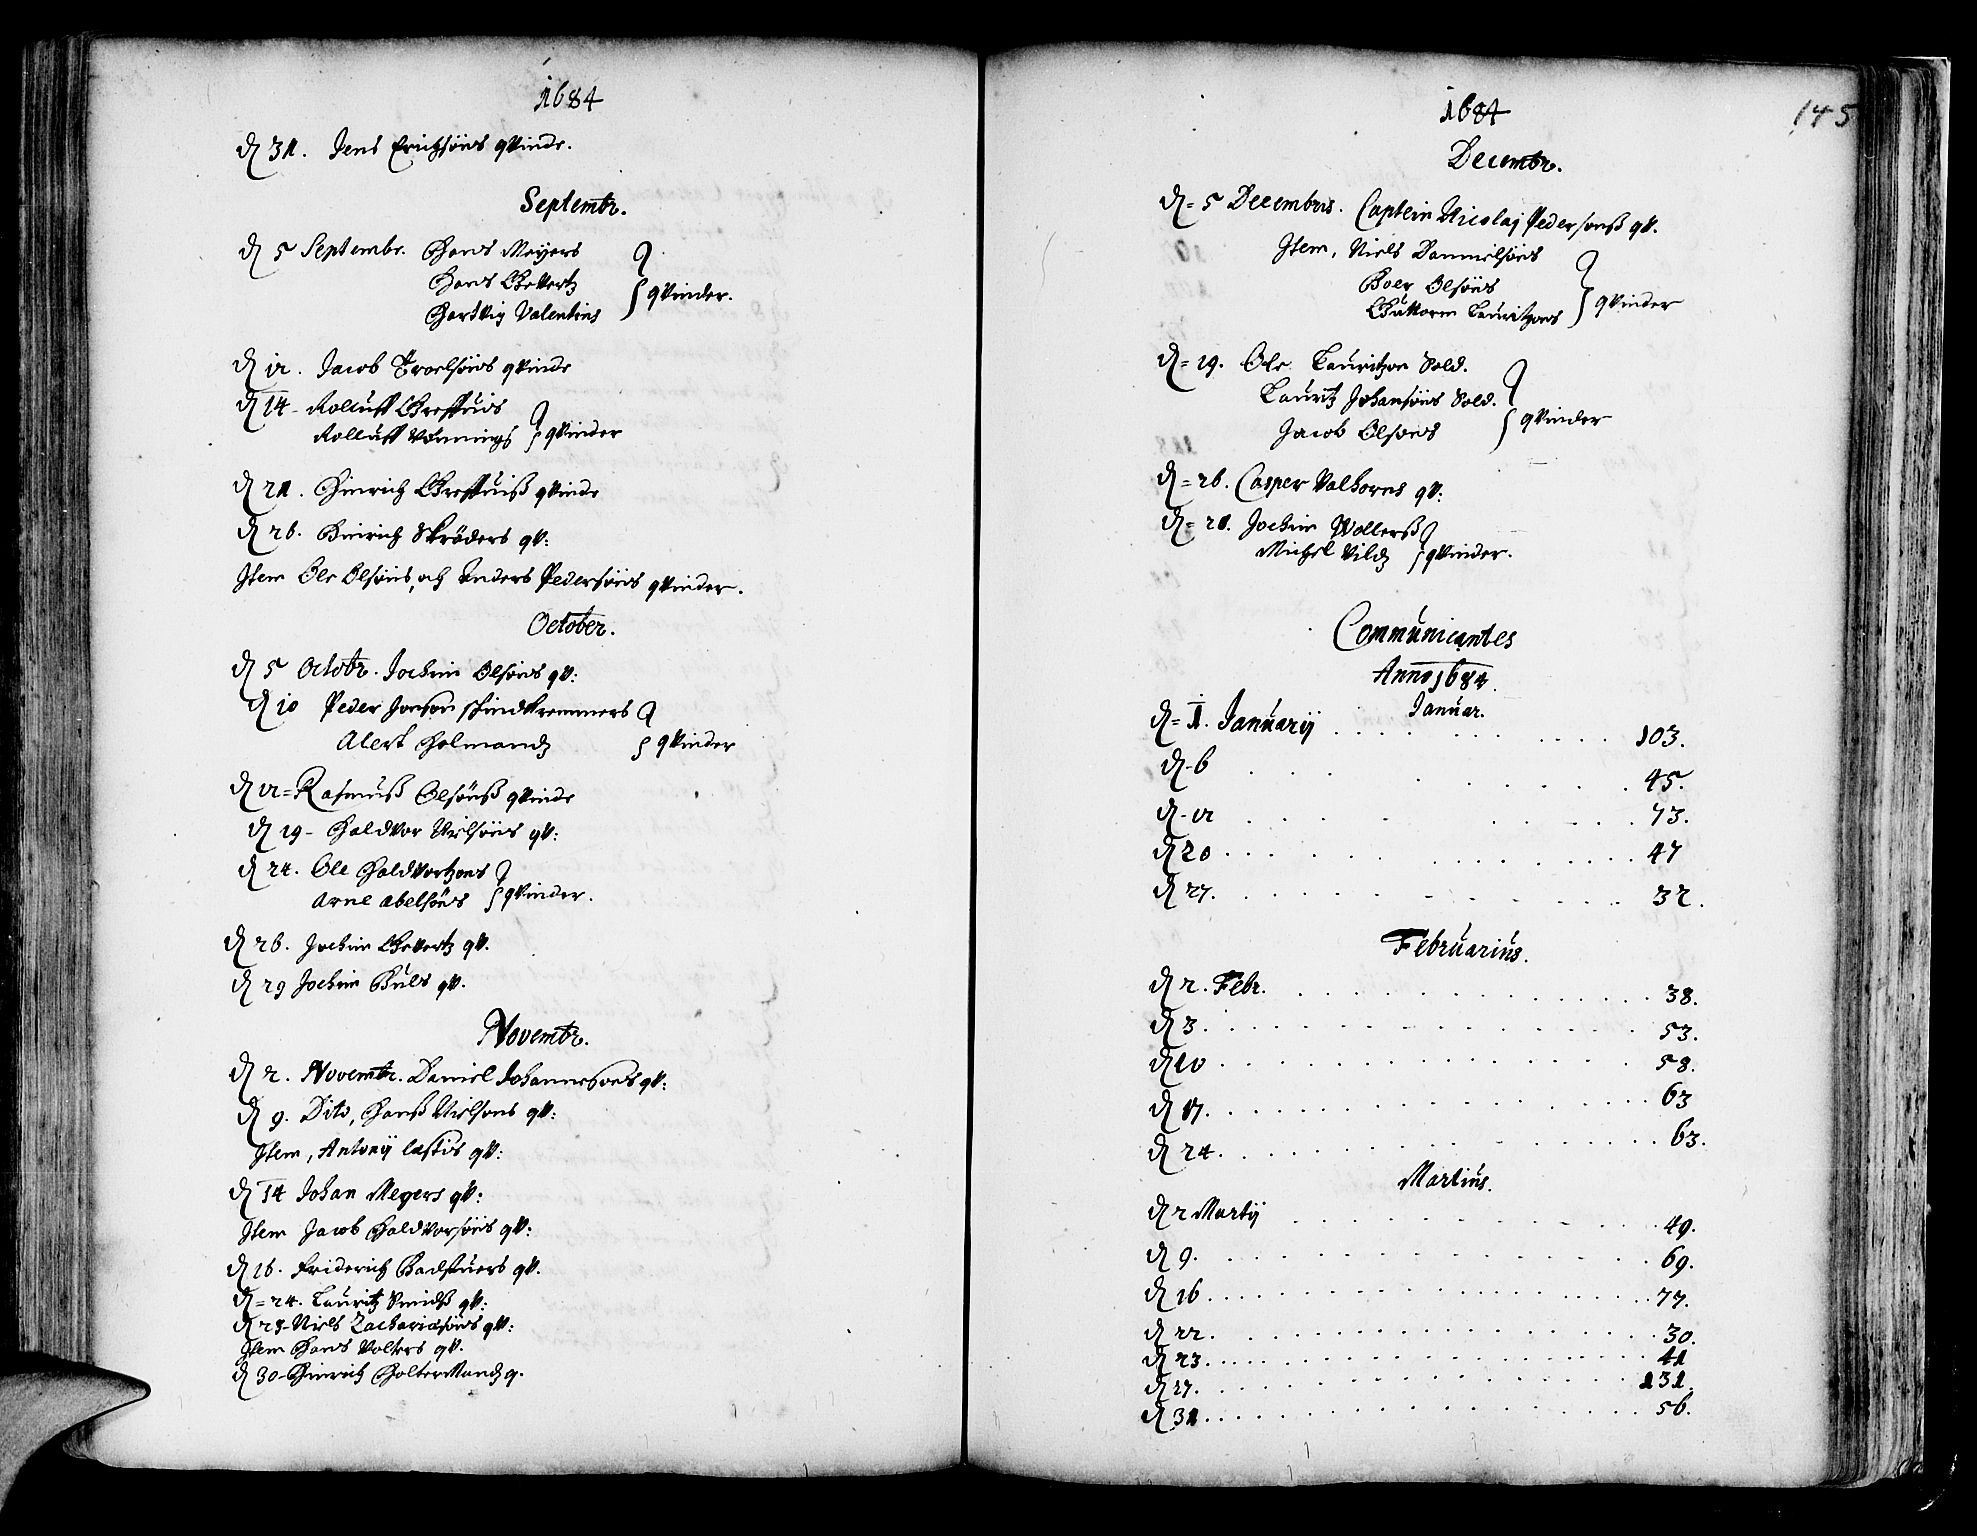 1684
d 31. Jens Erichsöns qvinde.
Septembr.
d 5 Septembr. Hans Meyers
Hans Gevertz
Hartvig Valentins } qvinder.
d 12. Jacob Troelsöns qvinde
d 14 - Rolluff Greffuns
Rolluff Vönnings } qvinder
d 21. Hinrich qvinde
d 26. Hinrich Skröders qv:
Item Ole Olsöns, och Anders Pedersöns qvinder.
October.
d 5 Octobr. Jochim Olsöns qv:
d 10 Peder Jonson skindkremmers
Alert Holmands } qvinder
d 12 = Rasmuss Olsönss qvinde
d 19 - Haldvor Nielsöns qv:
d 24. Ole Haldvortzons
Arne Abelsöns } qvinder.
d 26. Jochim Gevertz qv.
d 29 Jochim Buls qv.
Novembr.
d 2. Novembr. Daniel Johannesons qv:
d 9. Dito, Hanss Nielsons qv:
Item, Antonij qv:
d 14 Johan Meyers qv:
Item Jacob Haldvorsöns qv:
d 16. Friderich Badstuers qv.
d = 24. Lauritz Smidss qv:
d 28 - Niels Zachariæsöns qv:
Item Hans Volters qv.
d 30 - Hinrich Holtermands q.
1684
145
Decembr.
d = 5 Decembris. Captein Nicolaj Pedersonss qv.
Item, Niels Dannielsöns
Boer Olsöns
Guttorm Lauritzons } qvinder
d = 19. Ole Lauritzon Sold.
Lauritz Johansöns Sold.
Jacob Olsons } qvinder
d = 26. Casper Valhorns qv:
d = 28. Jochim Wollerss
Michel Vilds } qvinder.
Communicantes
Anno 1684.
Januar.
d = 1. Januarij . . . . . . . 103.
d - 6 . . . . . . . 45.
d - 12 . . . . . . . 73.
d 20 . . . . . . . 47
d 27. . . . . . . . 32.
Februarius.
d 2. Febr. . . . . . . . 38.
d 3. . . . . . . . 53.
d 10 . . . . . . . 58.
d 17. . . . . . . . 63
d 24. . . . . . . . 63.
Martius.
d 2 Martij . . . . . . . 49.
d 9. . . . . . . . 69.
d 16 . . . . . . . 77.
d 22. . . . . . . . 30.
d 23. . . . . . . . 41
d 27. . . . . . . . 131.
d 31. . . . . . . . 56.